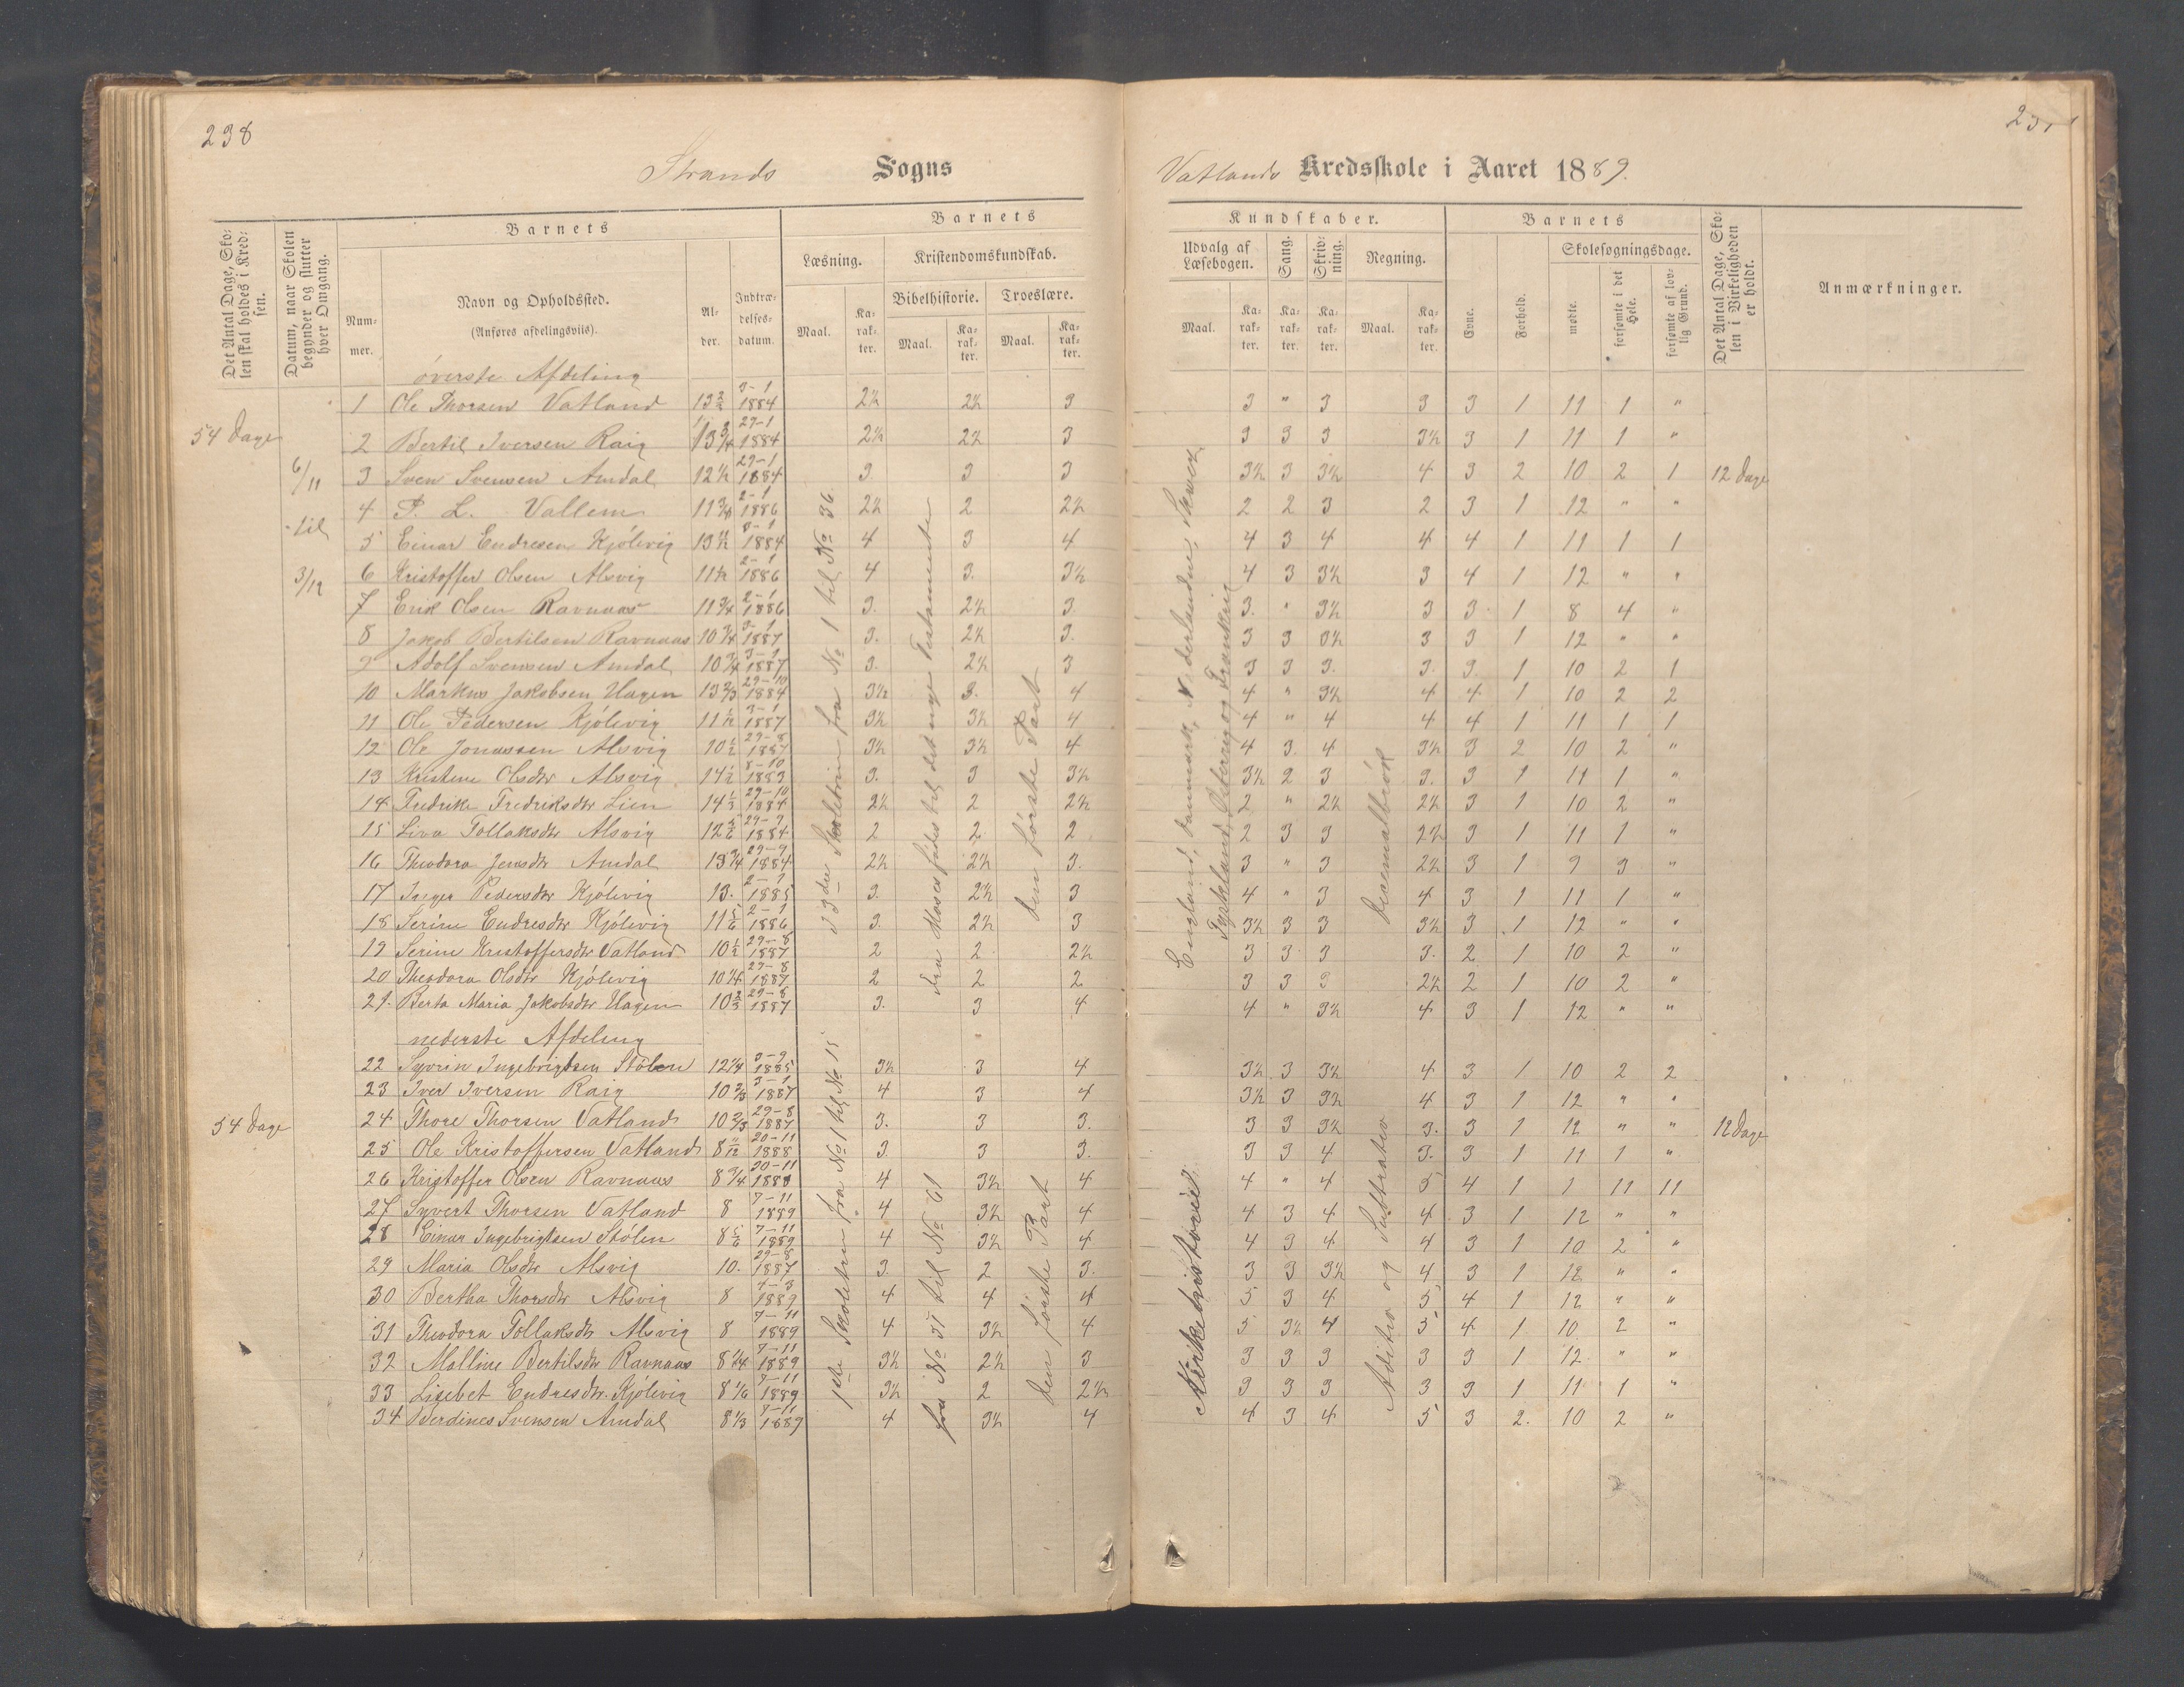 238
Strands Sogns
Vatlands Kredsskole i Aaret 1889.
Det Antal Dage, Skolen skal holdes i Kredsen.
Datum, naar Skolen begynder og slutter hver Omgang.
Barnets
Nummer.
Navn og Opholdssted.
(Anføres afdelingsviis).
Alder.
Indtrædelsesdatum.
Barnets
Læsning.
Kristendomskundskab.
Bibelhistorie.
Troeslære.
Maal.
Karakter.
Maal.
Karakter.
Maal.
Karakter.
Kundskaber.
Udvalg af Læsebogen.
Sang.
Skrivning.
Regning.
Maal.
Karakter.
Karakter.
Karakter.
Maal.
Karakter.
Barnets
Evne.
Forhold.
Skolesøgningsdage.
mødte.
forsømte i det Hele.
forsømte af lovlig Grund.
Det Antal Dage, Skolen i Virkeligheden er holdt.
Anmærkninger.
øverste Afdeling
1 Ole Thorsen Vatland 3-1 1884 2½ 2½ 3 3 " 3 3 3 1 11 1 "
54 Dage
2 Bertil Iversen Raig 13¾ 29-1 1884 2½ 2½ 3 3 3 3 3½ 3 1 11 1 "
6/11 3 Sven Svensen Amdal 12½ 29-1 1884 3 3 3 3½ 3 3½ 4 3 2 10 2 1 12 Dage
4 P. L. Vallem 11¾ 2-1 1886 2½ 2 2½ 2 2 3 2 3 1 12 " "
til
5 Einar Endresen Kjölevig 1884 4 3 4 4 3 4 4 4 1 11 1 1
3/12 6 Kristoffer Olsen Alsvig 11½ 2-1 1886 4 3 3½ 4 3 3½ 3 4 1 12 " "
7 Erik Olsen Ravnaas 11¾ 2-1 1886 3. 2½ 3 3. " 3½ 3 3 1 8 4 "
8 Jakob Bertilsen Ravnaas 10¾ 3-1 1887 3. 2½ 3. 3 3 3½ 3 3 1 12 " "
9 Adolf Svensen Amdal 10¾ 3-1 1887 3. 2½ 3 3 3 3. 3. 3. 1 10 2 1
10 Markus Jakobsen Hagen 13⅔ 29-10 1884 3½ 3. 4 4 " 3½ 4 4 1 10 2 2
11 Ole Pedersen Kjölevig 11½ 3-1 1887 3½ 3½ 4 4 " 4 4 4 1 11 1 1
12 Ole Jonassen Alsvig 10½ 29-8 1887 3½ 3½ 4 4 3. 4 3½ 3 2 10 2 "
13 Kristine Olsdtr Alsvig 14½ 8-10 1883 3. 3 3½ 3½ 2 3 3. 3 1 11 1 "
14 Fredrike Fredriksdtr Lien 14⅓ 29-10 1884 2½ 2 2½ 2 " 2½ 2½ 3 1 10 2 "
15 Liva Tollaksdtr Alsvig 12⅚ 29-9 1884 2 2 2 2 3 3 2½ 3 1 11 1 "
16 Theodora Jensdtr Amdal 13¾ 29-9 1884 2½ 2½ 3. 3 " 3 2½ 3 1 9 3 "
17 Inger Pedersdtr Kjölevig 13. 1885 3. 2½ 3 4 " 3 4 3 1 11 1 "
18 Serine Endresdtr Kjölevig 11⅚ 2-1 1886 3. 2½ 3 3½ 3 3 3½ 3 1 12 " "
19 Serine Kristoffersdtr Vatland 10½ 29-8 1887 2 2 2½ 3 3 3 3. 2 1 10 2 "
20 Theodora Olsdtr Kjölevig 10¼ 29-8 1887 2 2 2 3 3 3 2½ 2 1 10 2 "
21. Berta Maria Jakobsdtr Hagen 10⅔ 29-8 1887 3. 3 4 4 " 3½ 4 3 1 12 " "
33die Skoletrin fra No 1 til No 36
fra Moses födes til det nye Testamente
den förste Part
England, Danmark, Nederlandene, Tyskland, Österrig og Frankrig
Decemalbrök
nederste Afdeling
22 Syvrin Ingebrigtsen Stölen 12¼ 3-9 1885 3½ 3 4 3½ 3 3½ 4 3 1 10 2 2
23 Iver Iversen Raig 10⅔ 3-1 1887 4 3 4 3½ 3 3½ 4 3 1 12 " "
54 Dage 24 Thore Thorsen Vatland 10⅔ 29-8 1887 3. 3 3. 3 3 3½ 3. 3 1 12 " " 12 Dage
25 Ole Kristoffersen Vatland 8 11/12 20-11 1888 3. 3 3. 3 3 4 3. 3 1 11 1 "
26 Kristoffer Olsen Ravnaas 8¾ 20-11 1888 4 3½ 4 4 " 4 5 4 1 1 11 11
27 Syvert Thorsen Vatland 8 7-11 1889 4 3½ 4 4 3 4 4 3 1 12 " "
28 Einar Ingebrigtsen Stölen 8⅚ 7-11 1889 4 3½ 4 4 3 4 4 3 1 10 2 "
29 Maria Olsdtr Alsvig 10. 29-8 1887 3. 2 3. 3 3 3½ 4 3 1 12 " "
30 Bertha Thorsdtr Alsvig 8 4-3 1889 4 4 4 5 3 4 5 4 1 12 " "
31 Theodora Tollaksdtr Alsvig 8 7-11 1889 4 3½ 4 5 3½ 4 5 4 1 10 2 "
32 Malline Bertilsdtr Ravnaas 8¼ 7-11 1889 3½ 2½ 3 3 3 3 3 3 1 12 " "
33 Lisebet Endresdtr. Kjölevig 8⅙ 7-11 1889 3½ 2 2½ 3 3 3 3 3 1 11 1 "
34 Berdines Svensen Amdal 8⅓ 7-11 1889 4 3½ 4 4 3 4 5 3 2. 10 2 "
1ste Skoletrin fra No 1 til No 15
fra No 31 til No 61
den förste Part
Kirkehistorie
Aditio og Suttratio